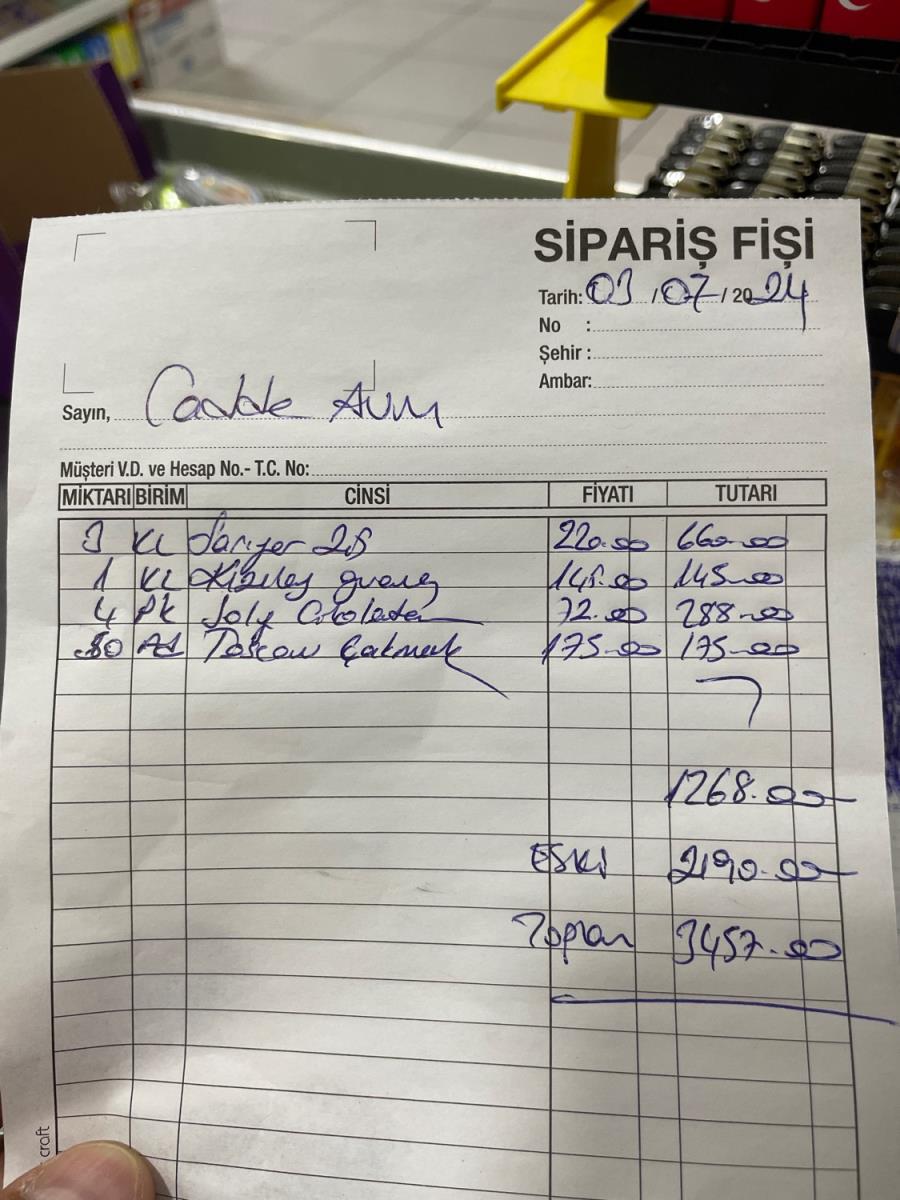 SİPARİŞ FİŞİ
Tarih: 03 / 07 / 2024
No :
Şehir :
Ambar:
Sayın, Cadde AVM
Müşteri V.D. ve Hesap No.- T.C. No:
MİKTARI BİRİM CİNSİ FİYATI TUTARI
3 KL Sarıyer 2,5 220.00 660.00
1 KL Kızılay 145.00 145.00
4 Pk Joly Çikolata 72.00 288.00
50 Ad Tokcan Çakmak 175.00 175.00
1268.00
ESKİ 2190.00
Toplam 3457.00
craft